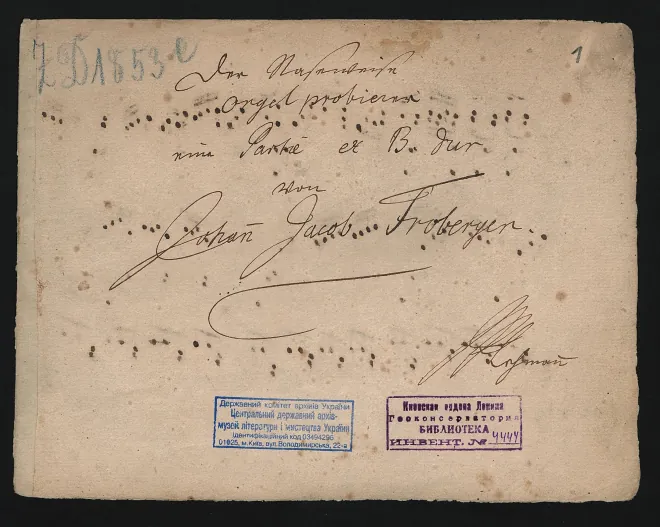 ZD 1853 e
1
Der Naseweise
orgel probierer
eine Partie ex B. dur
von
Johañ Jacob Froberger.
Державний комітет архівів України
Центральний державний архів-
музей літератури і мистецтва України
Ідентифікаційний код 03494296
01025, м.Київ, вул.Володимирська, 22-а
Киевская ордена Ленина
Госконсерватория
БИБЛИОТЕКА
ИНВЕНТ. № 4444